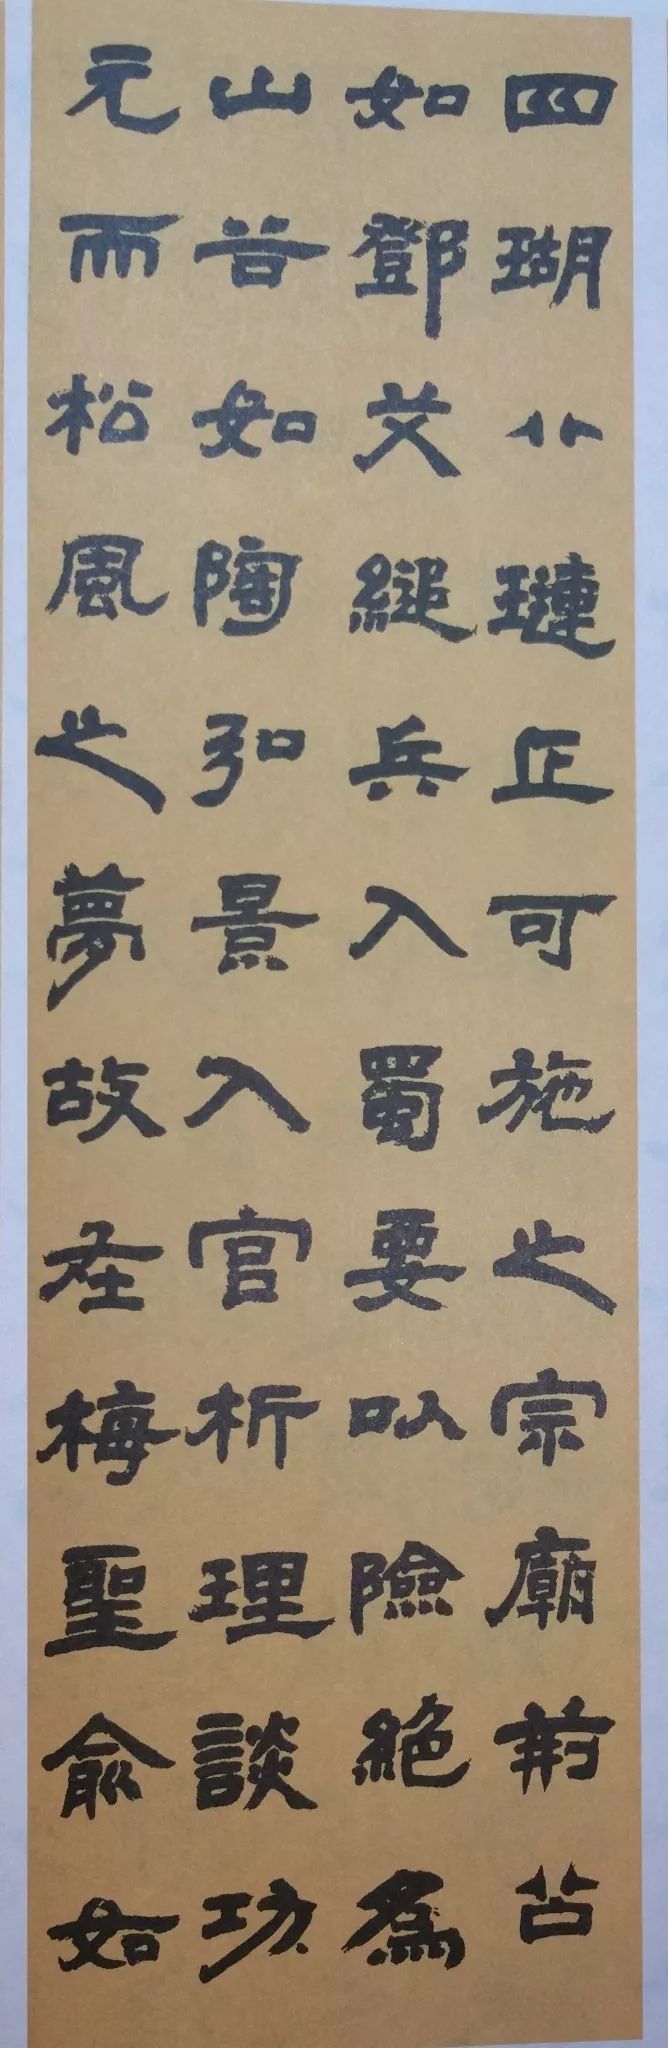 四瑚八璉正可施之宗廟荊公
如鄧艾縋兵入蜀要以險絕為
山谷如陶弘景入官析理談功
元而松風之夢故在梅聖俞如